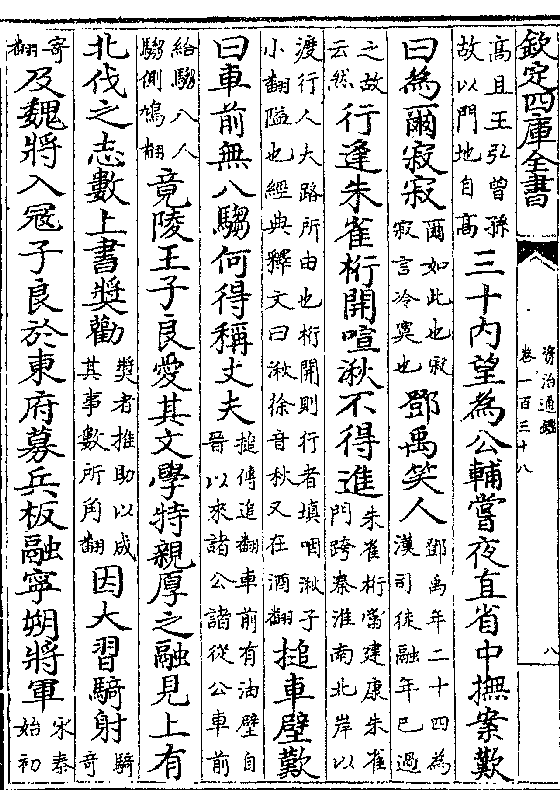 欽定四庫全書
資治通鑑
卷一百三十八
八
高且王弘曾孫故以門地自高三十內望為公輔嘗夜直省中撫案歎
曰為爾寂寂爾如此也寂寂言冷寞也鄧禹笑人鄧禹年二十四為漢司徒融年已過
之故云然行逢朱雀桁開喧湫不得進朱雀桁當建康朱雀門跨秦淮南北岸以
渡行人大路所由也桁開則行者填咽湫子小翻隘也經典釋文曰湫徐音秋又在酒翻搥車壁歎
曰車前無八騶何得稱丈夫搥傳追翻車前有油壁自晉以來諸公諸從公車前
給騶八人騶側鳩翻竟陵王子良愛其文學特親厚之融見上有
北伐之志數上書奬勸奬者推助以成其事數所角翻因大習騎射騎奇
寄翻及魏將入寇子良於東府募兵板融寧朔將軍永泰始初